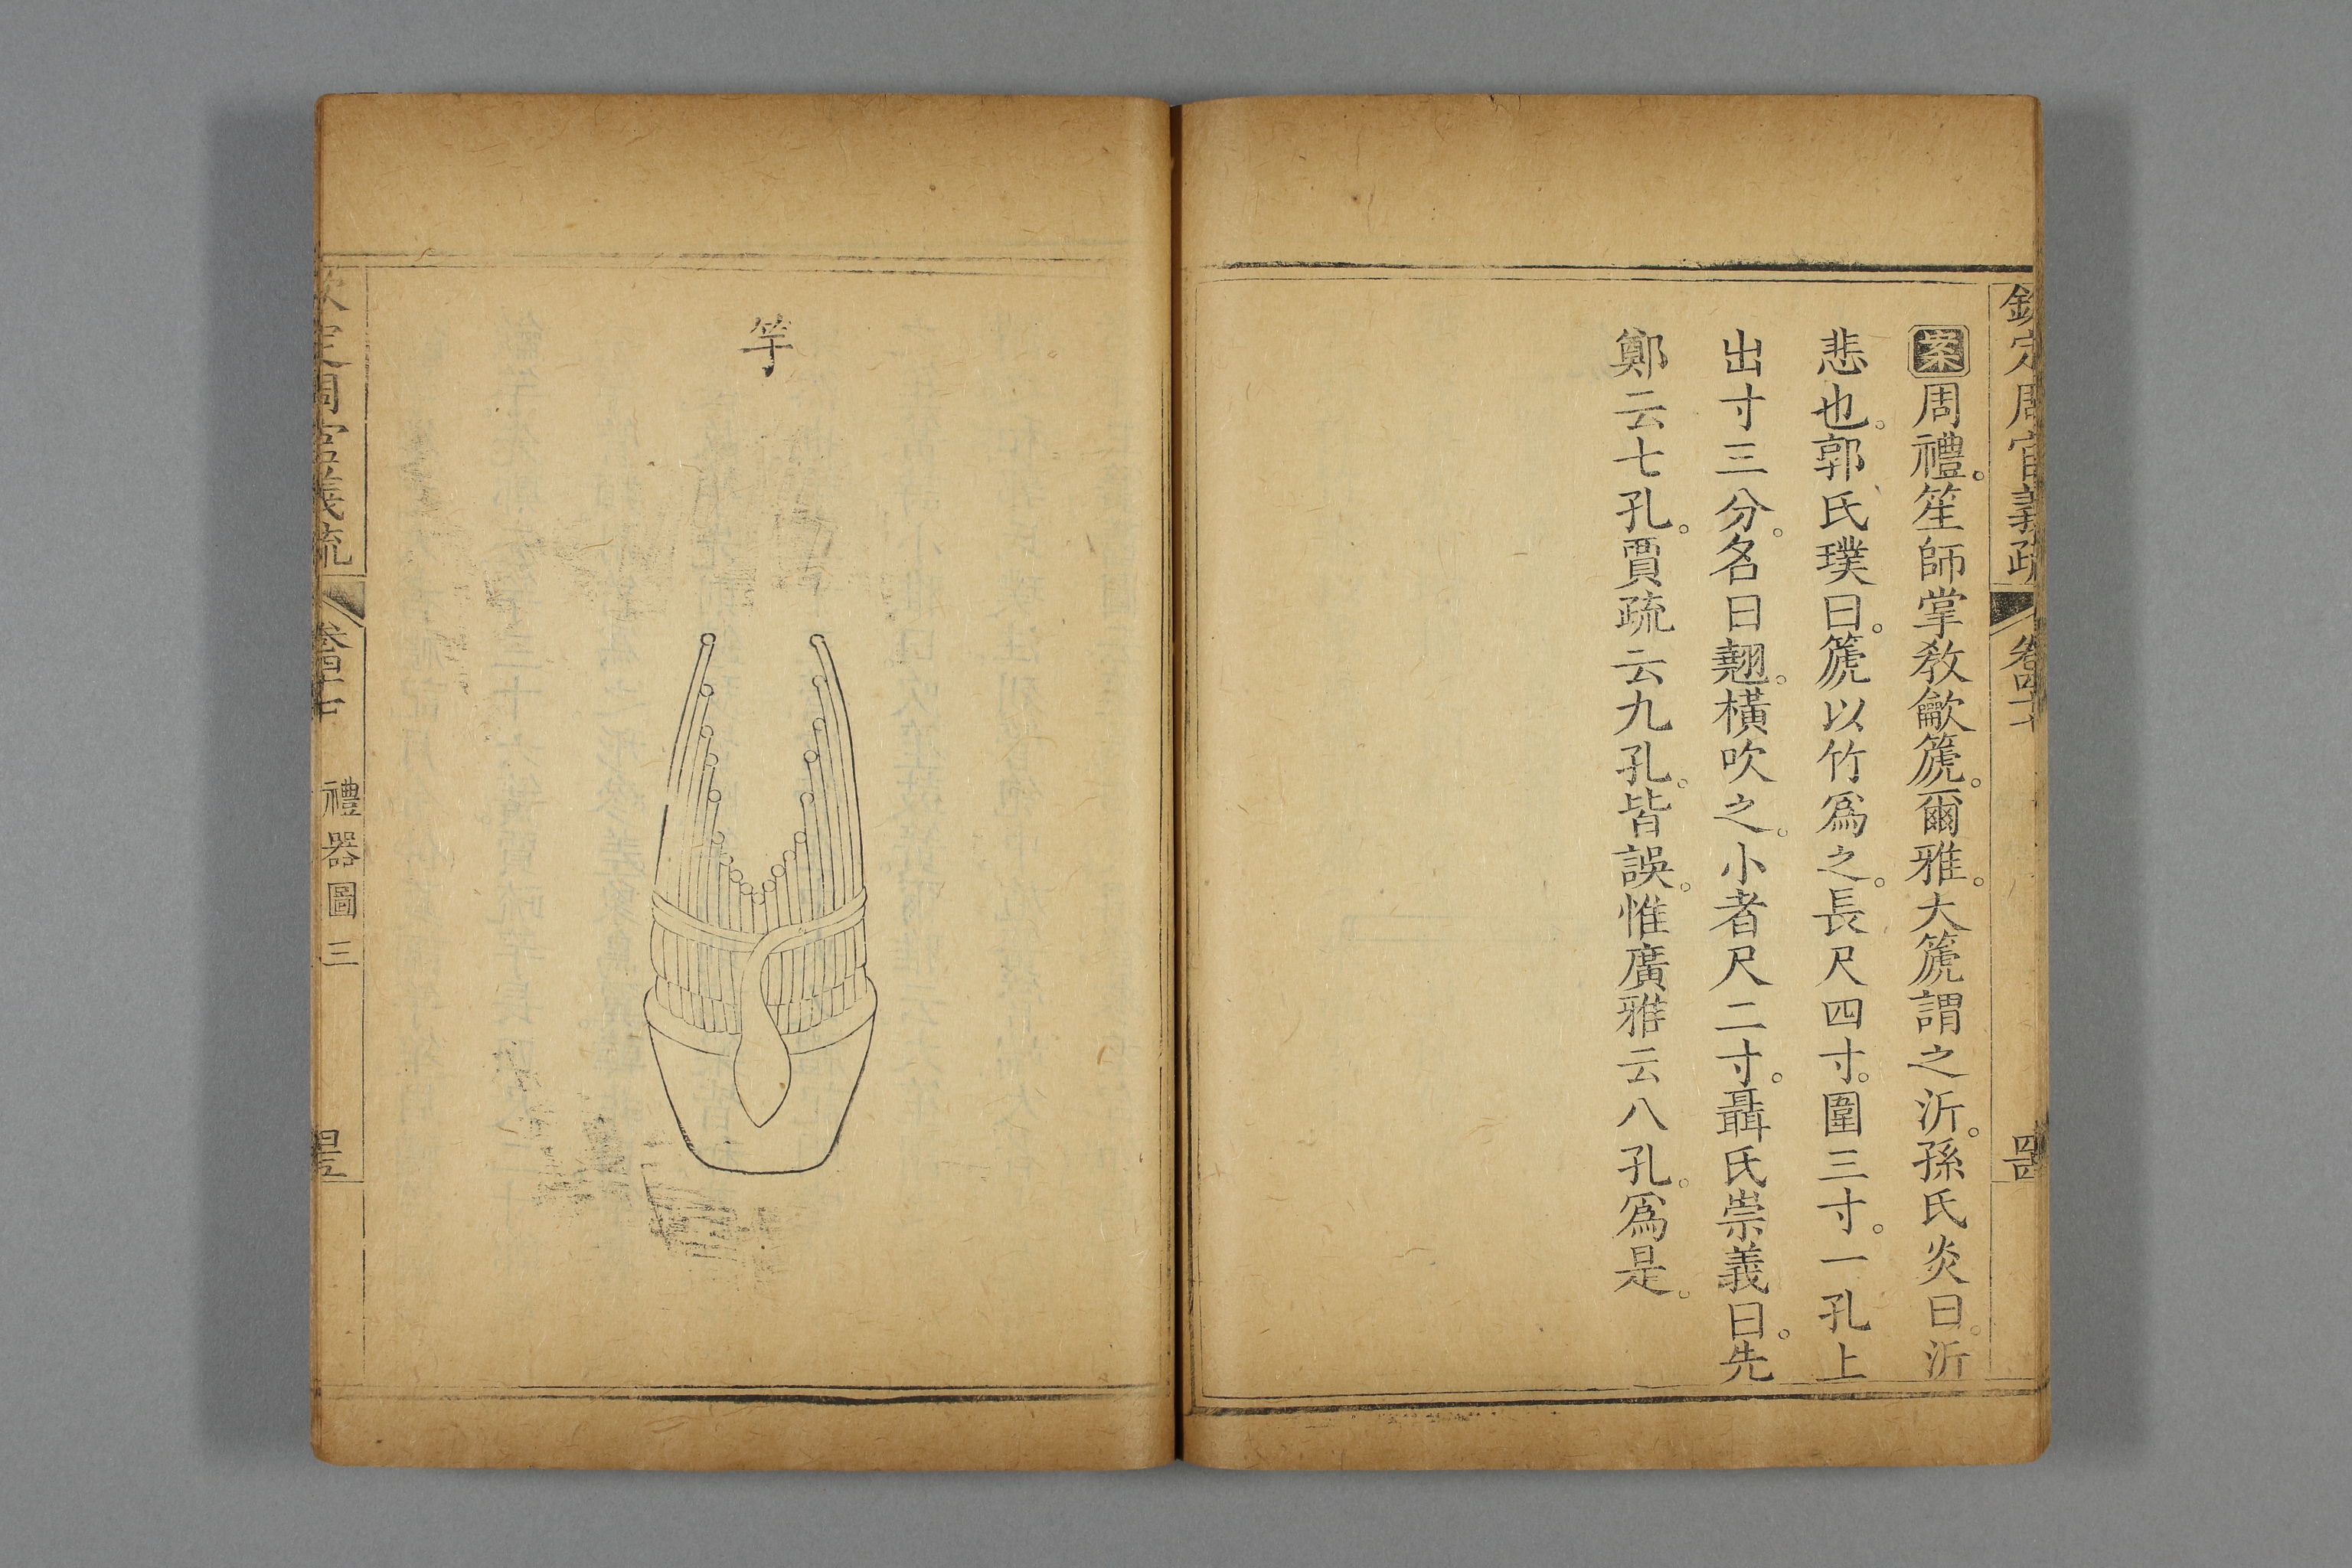 欽定周官義疏 卷四十七 四四
案周禮。笙師掌敎龡篪。爾雅。大篪謂之沂。孫氏炎曰。沂
悲也。郭氏璞曰。篪以竹爲之。長尺四寸。圍三寸。一孔上
出寸三分。名曰翹。橫吹之。小者尺二寸。聶氏崇義曰。先
鄭云七孔。賈疏云九孔。皆誤。惟廣雅云八孔。爲是。
竽
欽定周官義疏 卷四十七 禮器圖三